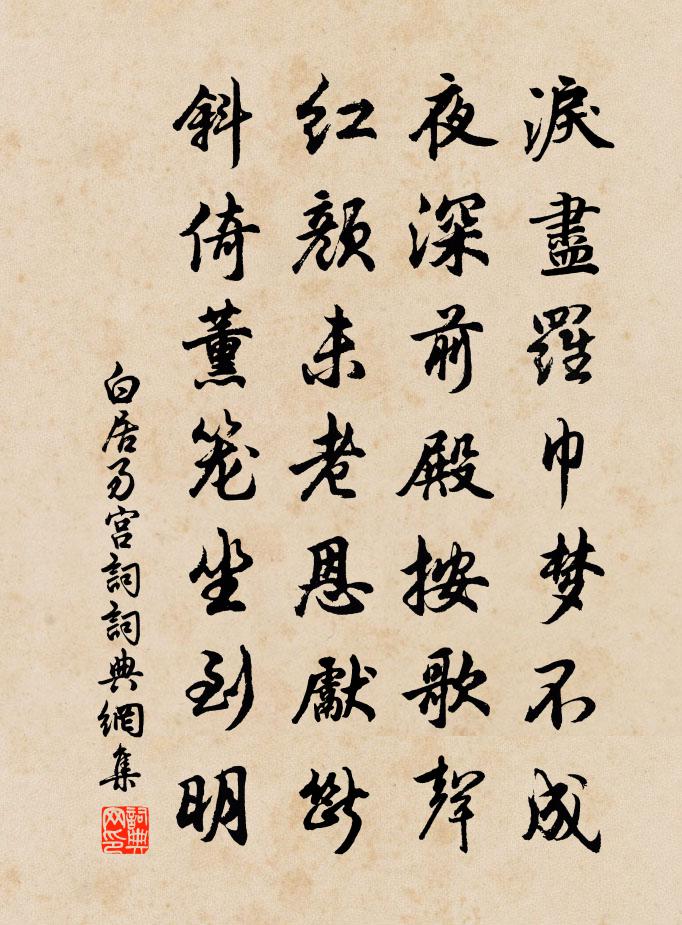 淚盡羅巾梦不成
夜深前殿按歌聲
紅顏未老恩獻斷
斜倚薰笼坐到明
白居易宮詞詞典網集
詞典网印